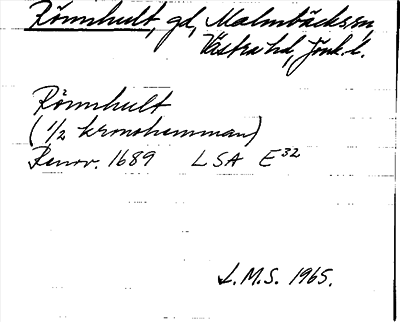 Rönnhult, gd, Malmbäcks sn,
Västra hd, Jönk. l.
Rönnhult
(1/2 kronohemman)
Renov. 1689 LSA E32
L.M.S. 1965.